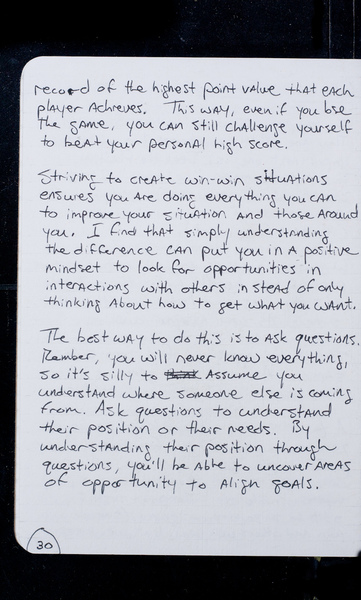 record of the highest point value that each
player achieves. This way, even if you lose
the game, you can still challenge yourself
to beat your personal high score.
Striving to create win-win situations
ensures you are doing everything you can
to improve your situation and those around
you. I find that simply understanding
the difference can put you in a positive
mindset to look for opportunities in
interactions with others in stead of only
thinking about how to get what you want.
The best way to do this is to ask questions.
Rember, you will never know everything,
so it's silly to assume you
understand where someone else is coming
from. Ask questions to understand
their position or their needs. By
understanding their position through
questions, you'll be able to uncover areas
of opportunity to align goals.
30